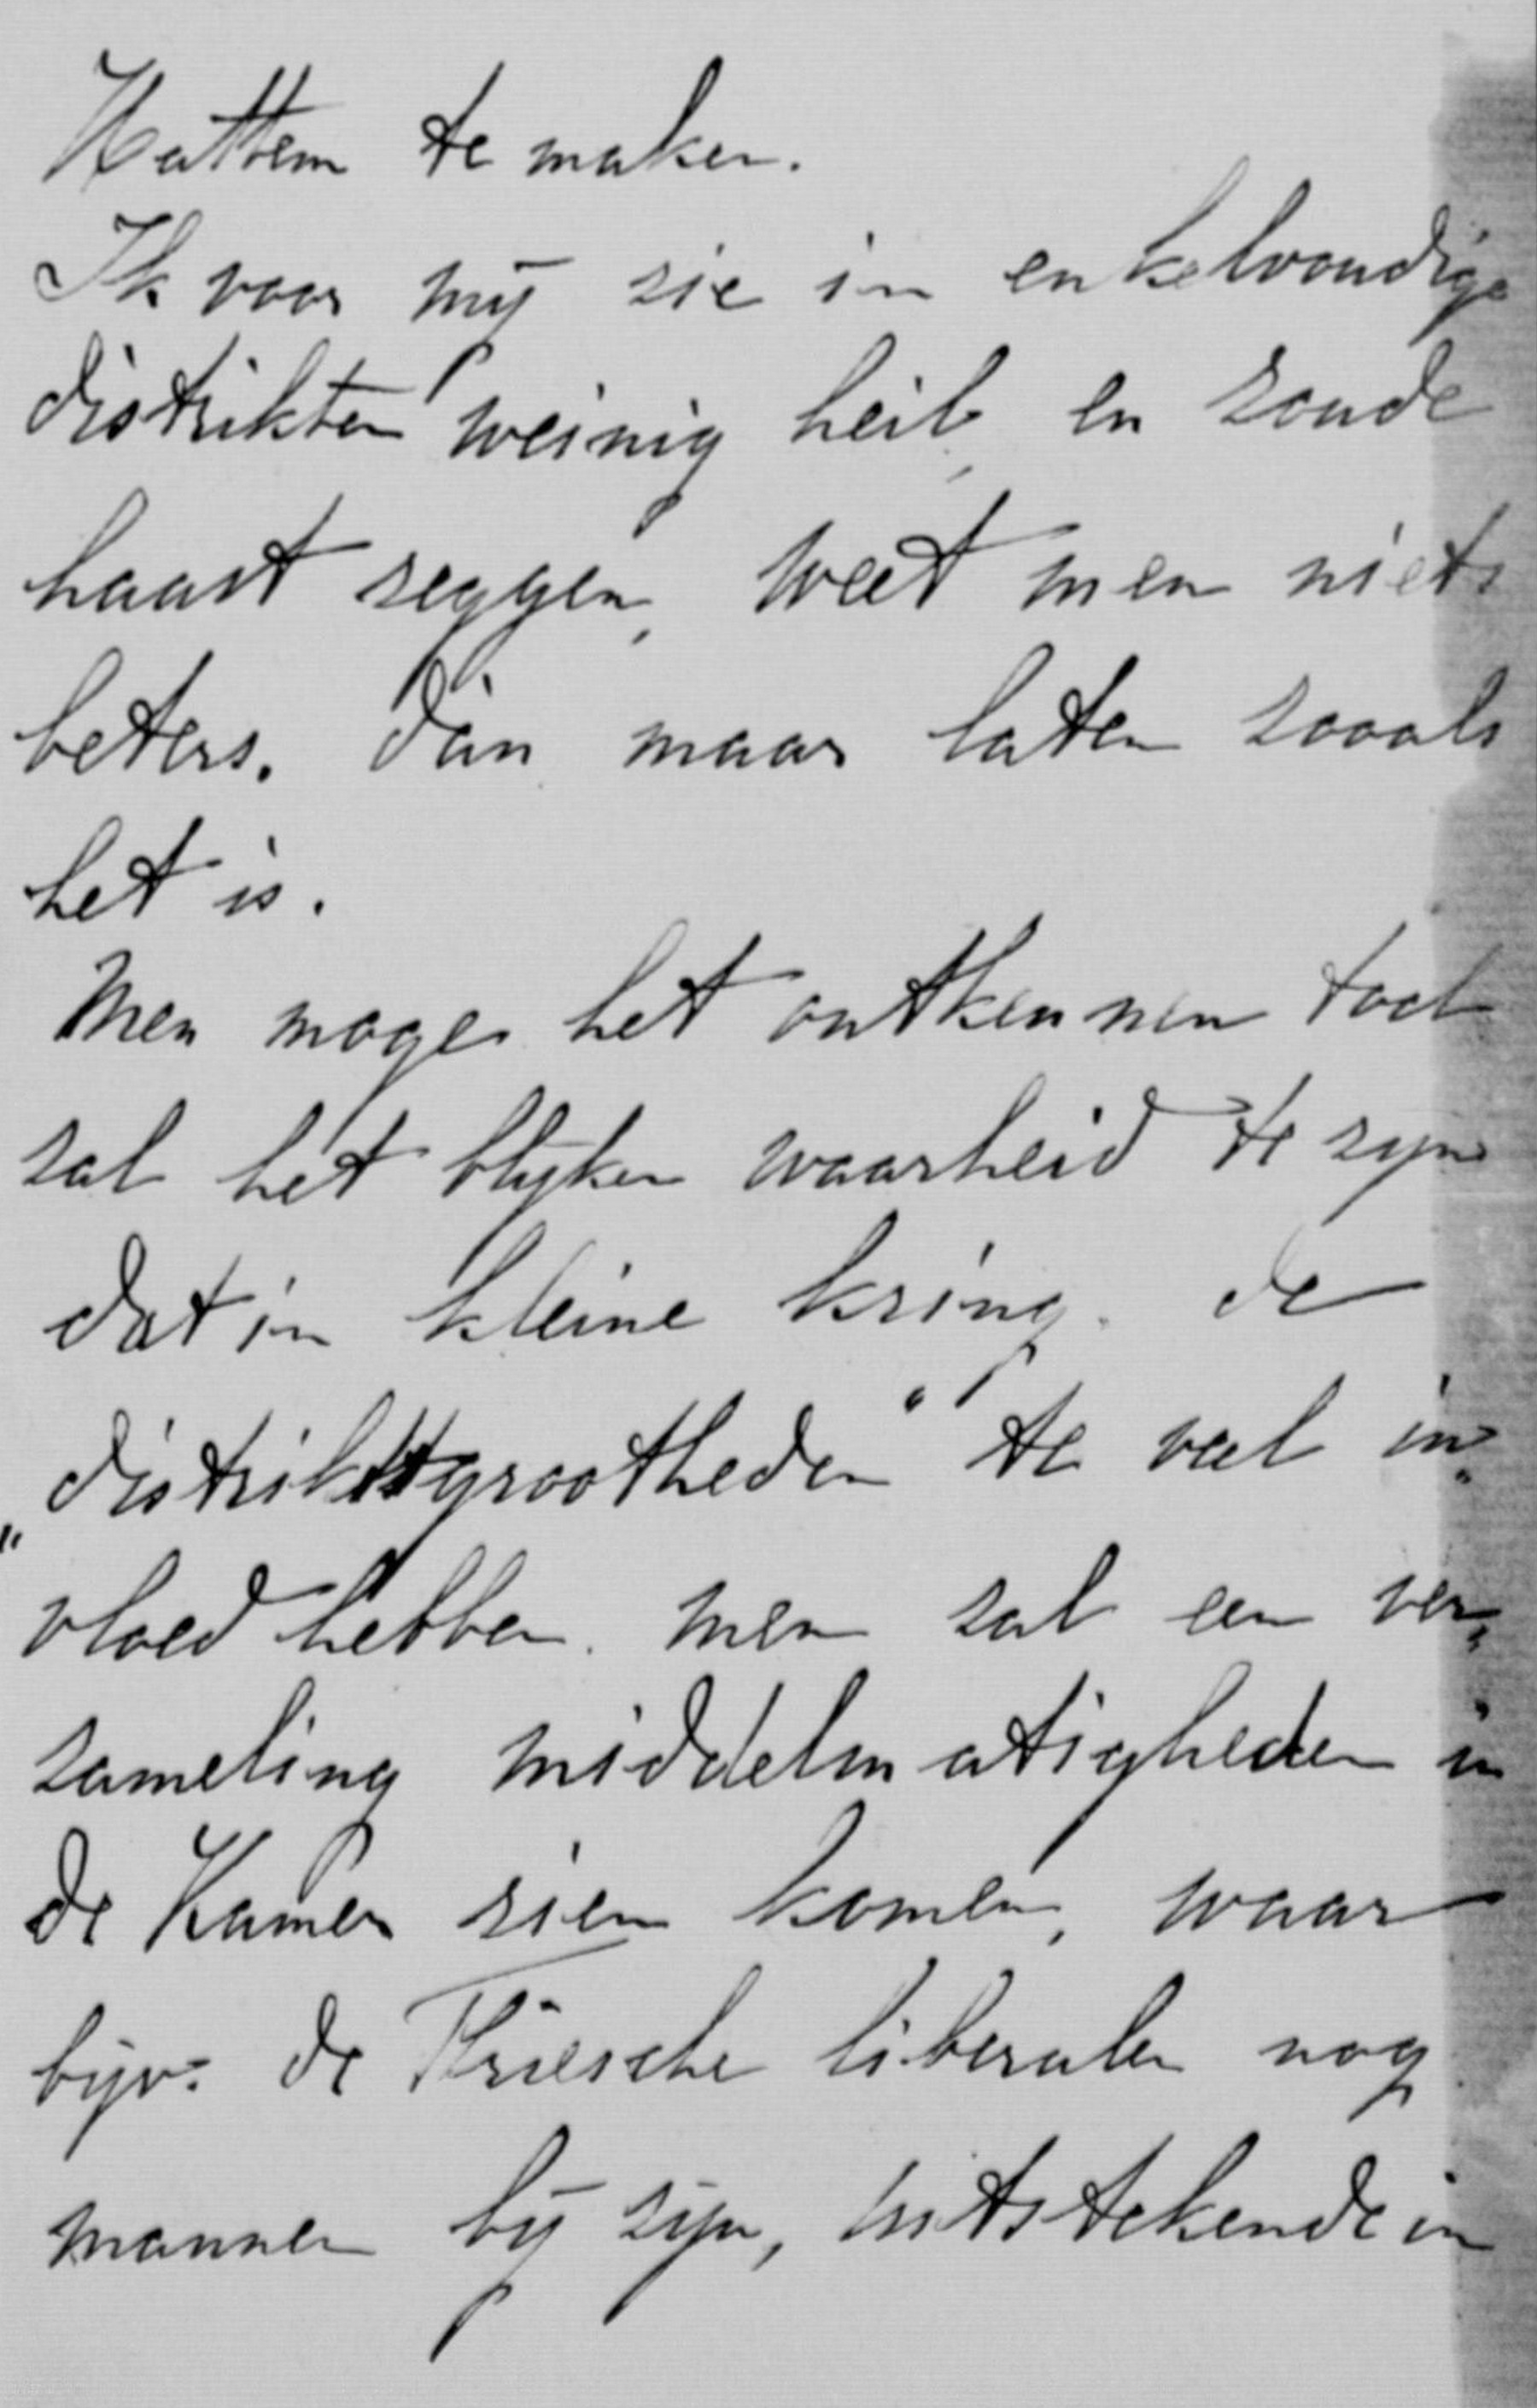 Hattem te maken.
Ik voor mij zie in enkelvoudige
distrikten weinig heil, en zoude
haast zeggen, weet men niets
beters. dàn maar laten zooals
het is.
Men moge het ontkennen toch
zal het blijken waarheid te zijn
dat in kleine kring. de
„distriktsgrootheden" te veel in„
vloed hebben. men zal een ver„
zameling middelmatigheden in
de Kamer zien komen, waar
bijv. de Friesche liberalen nog
mannen bij zijn, uitstekende in